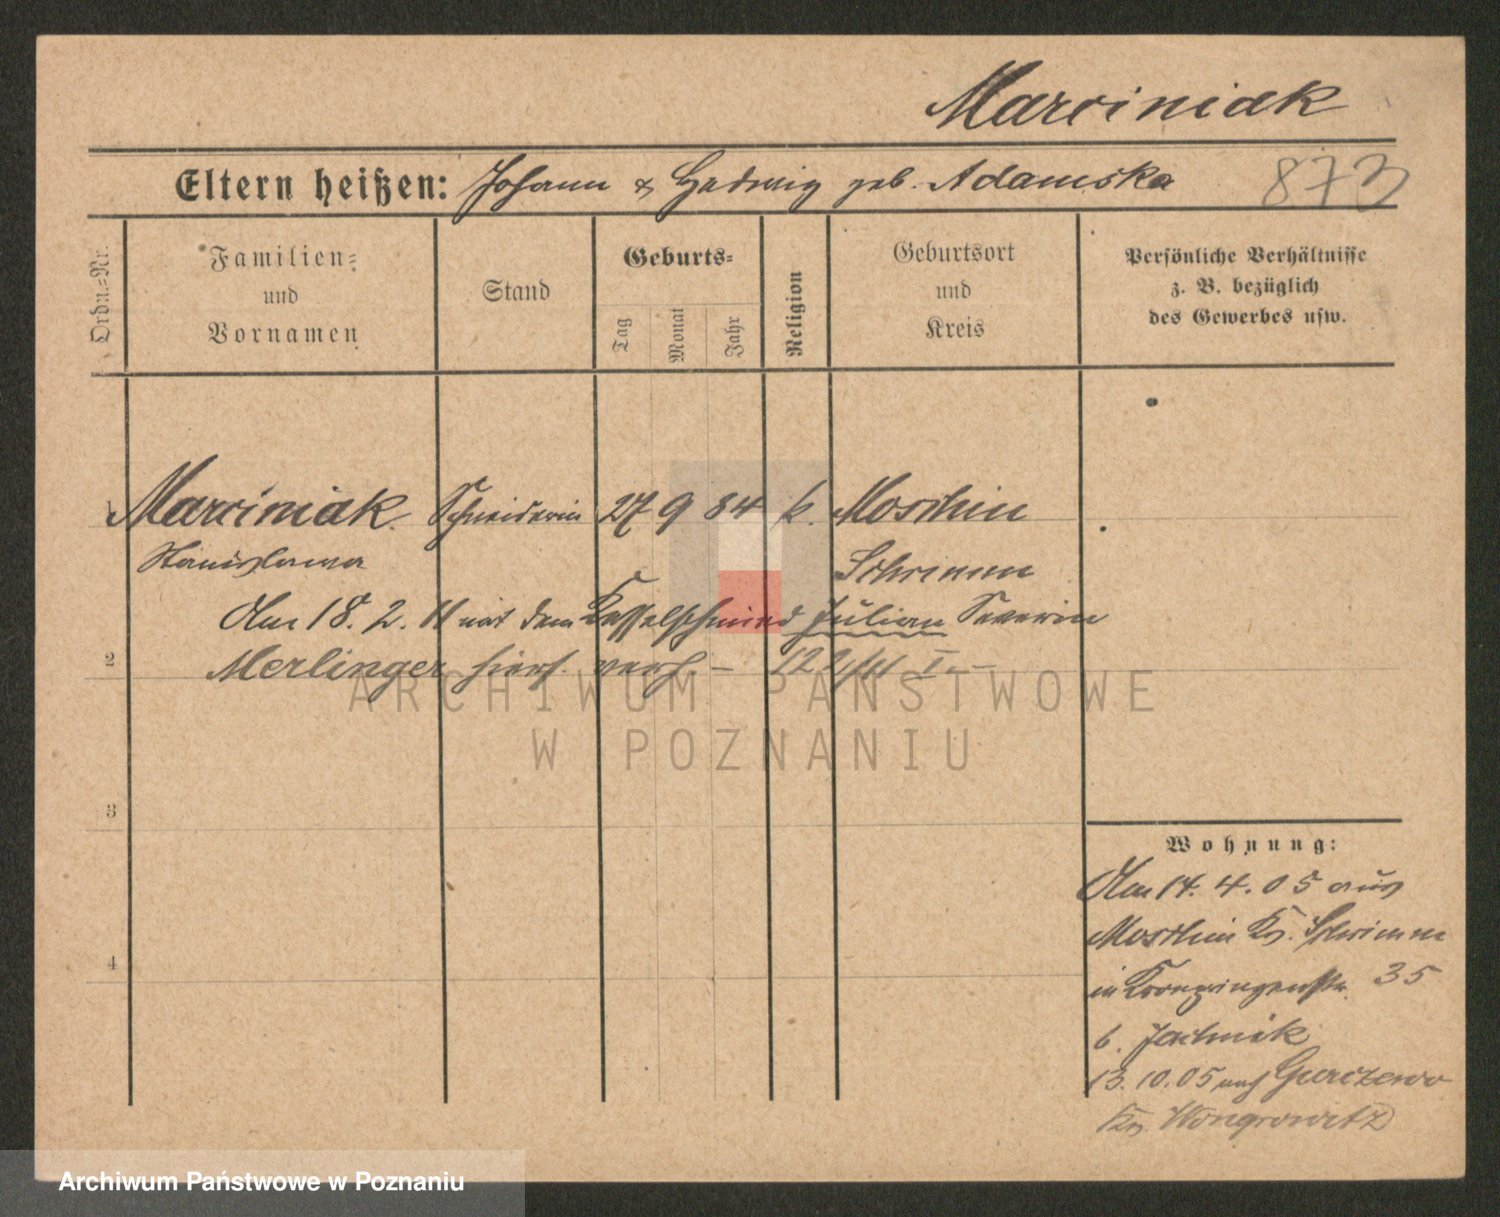 Marciniak
Eltern heißen: Johann & Hedwig geb. Adamska 873
Ordn.-Nr.
Familien-
und
Vornamen
Stand
Geburts-
Tag
Monat
Jahr
Religion
Geburtsort
und
Kreis
Persönliche Verhältnisse
z. B. bezüglich
des Gewerbes usw.
1 Marciniak Schneiderin 27 9 84 k. Moschin
Stanislawa Schrimm
Am 18. 2. 11 mit dem Kesselschmied Julian Severin
2 Merlinger hiers. verh. –
3
4
Wohnung:
Am 14. 4. 05 aus
Moschin Kr. Schrimm
in Kronprinzenstr. 35
b. Jachnik
13. 10. 05 nach Gurczewo
Kr. Wongrowitz
ARCHIWUM PAŃSTWOWE
W POZNANIU
Archiwum Państwowe w Poznaniu